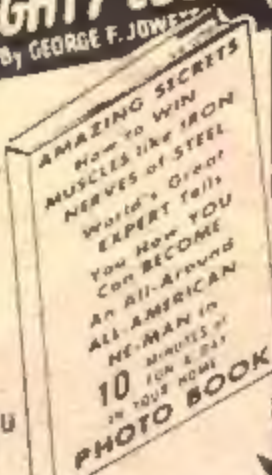 By GEORGE F. JOWETT
AMAZING SECRETS
How to WIN
MUSCLES like IRON
NERVES of STEEL
World's Great
EXPERT Tells
You How YOU
Can BECOME
An All-Around
ALL-AMERICAN
HE-MAN in
10 MINUTES of
FUN A DAY
IN YOUR HOME
PHOTO BOOK
U